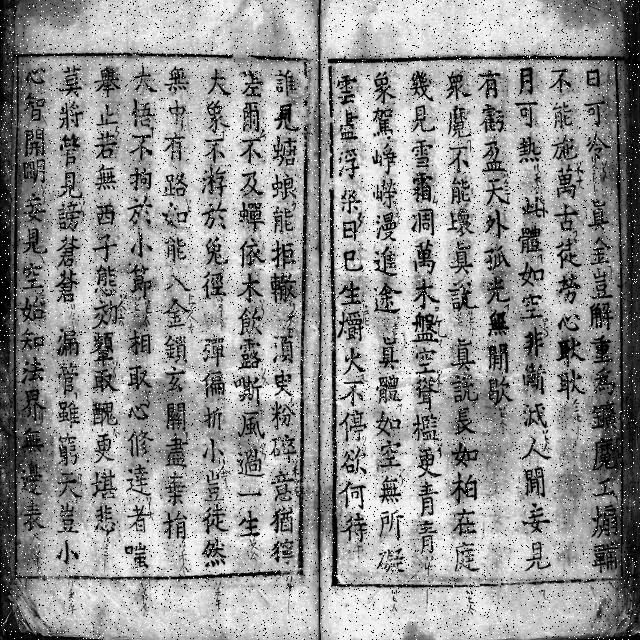 日可冷 真金豈解重爲鑛魔工煽鞴
不能施萬古徒勞心耿耿
月可熱 此體如空非斷滅人間妄見
有虧盈天外孤光無間歇
衆魔不能壞真說 真說長如柏在庭
幾見雪霜凋萬木盤空聳檻更青青
象駕崢嶸漫進途 真體如空無所礙
雲蓋浮 日已生爝火不停欲何待
誰見螗蜋能拒轍 須臾粉碎意猶
差爾不及蟬依木飲露嘶風過一生
大象不遊於兔徑 彈偏折小豈徒然
無中有路如能入金鎖玄關盡棄捐
大悟不拘於小節 相取心修達者嗤
舉止若無西子能効顰敢醜更堪悲
莫將管見謗蒼蒼 漏管雖窮天豈小
心智開明妄見空始知法界無邊表